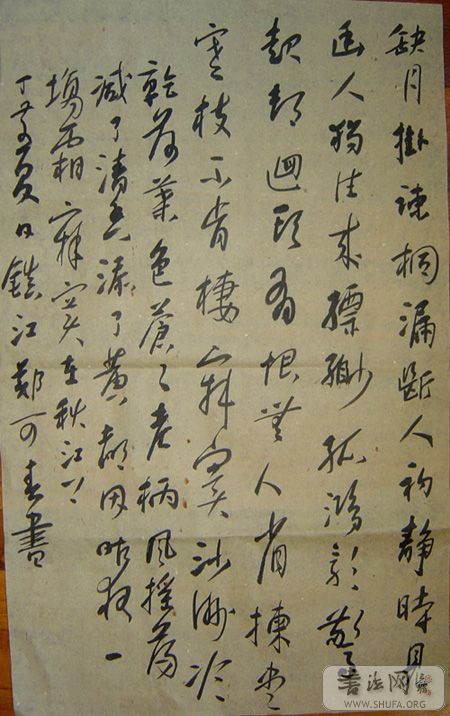 缺月掛疎桐漏斷人初靜時見
幽人獨往來縹緲孤鴻影驚
起卻迴頭有恨無人省揀盡
寒枝不肯棲寂寞沙洲冷
乾荷葉色蒼々老柄風搖蕩
減了清香添了黃都因昨夜一
塲霜寂寞在秋江上
丁亥夏日鎮江鄭可春書
書法网
WWW.SHUFA.ORG